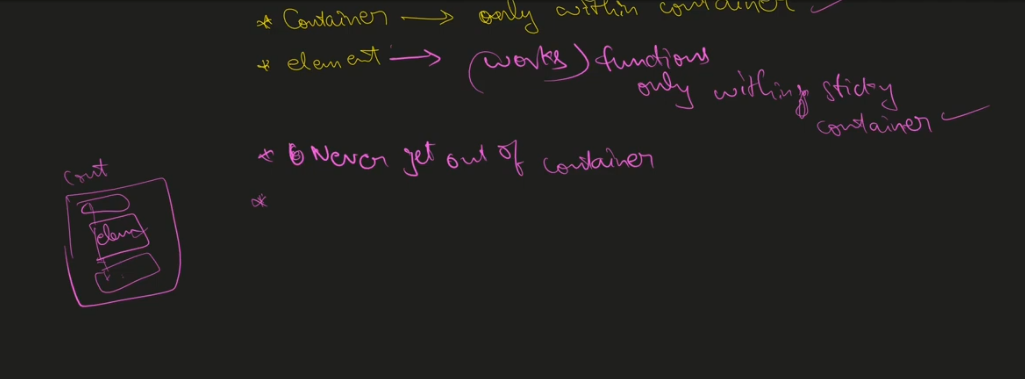 * Container → only within container ✓
* element → (works) functions
only withing sticky
container ✓
* Never get out of container
*
cont
elem